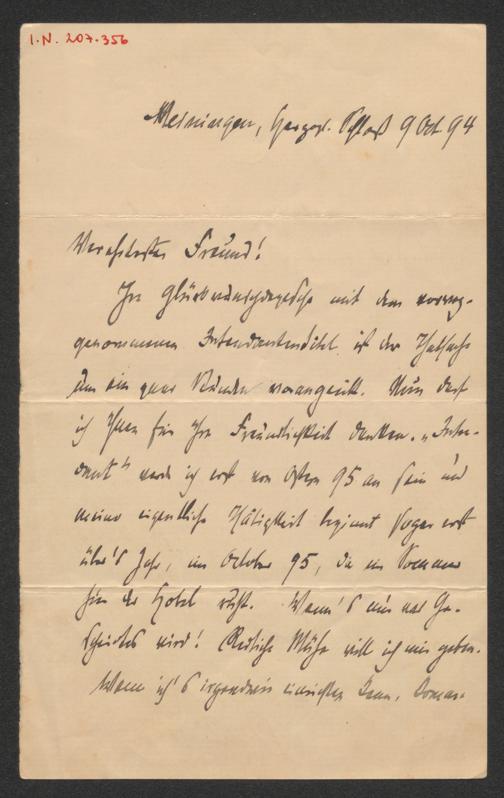 I.N. 207.356
Meiningen, Herzogl. Schloß 9 Oct. 94
Verehrtester Freund!
Ihre Glückwunschdepesche mit dem vorweg-
genommenen Intendantentitel ist der Thatsache
um ein paar Stunden vorangeeilt. Nun darf
ich Ihnen für Ihre Freundlichkeit danken. „Inten-
dant" werde ich erst von Ostern 95 an sein und
meine eigentliche Thätigkeit beginnt sogar erst
über's Jahr, im October 95, da im Sommer
hier der ruht. Wenn's nur was Ge-
scheidtes wird! Redliche Mühe will ich mir geben.
Wenn ich's irgendwie einrichten kann,